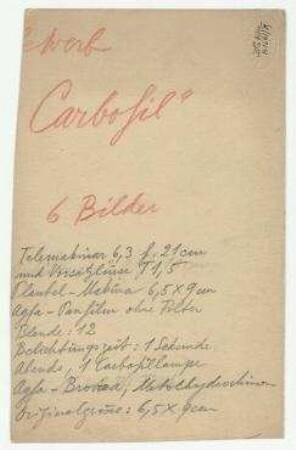 Werb
Carbosil"
6 Bilder
Telemakinar 6,3 f. 21 cm
und Vorsatzlinse T 1,5
Plaubel-Makina 6,5 x 9 cm
Agfa-Panfilm ohne Filter
Blende: 12
Belichtungszeit: 1 Sekunde
Abends, 1 Carbosillampe
Agfa-Brovira, Metolhydrochinon
Originalgröße: 6,5 x 9 cm